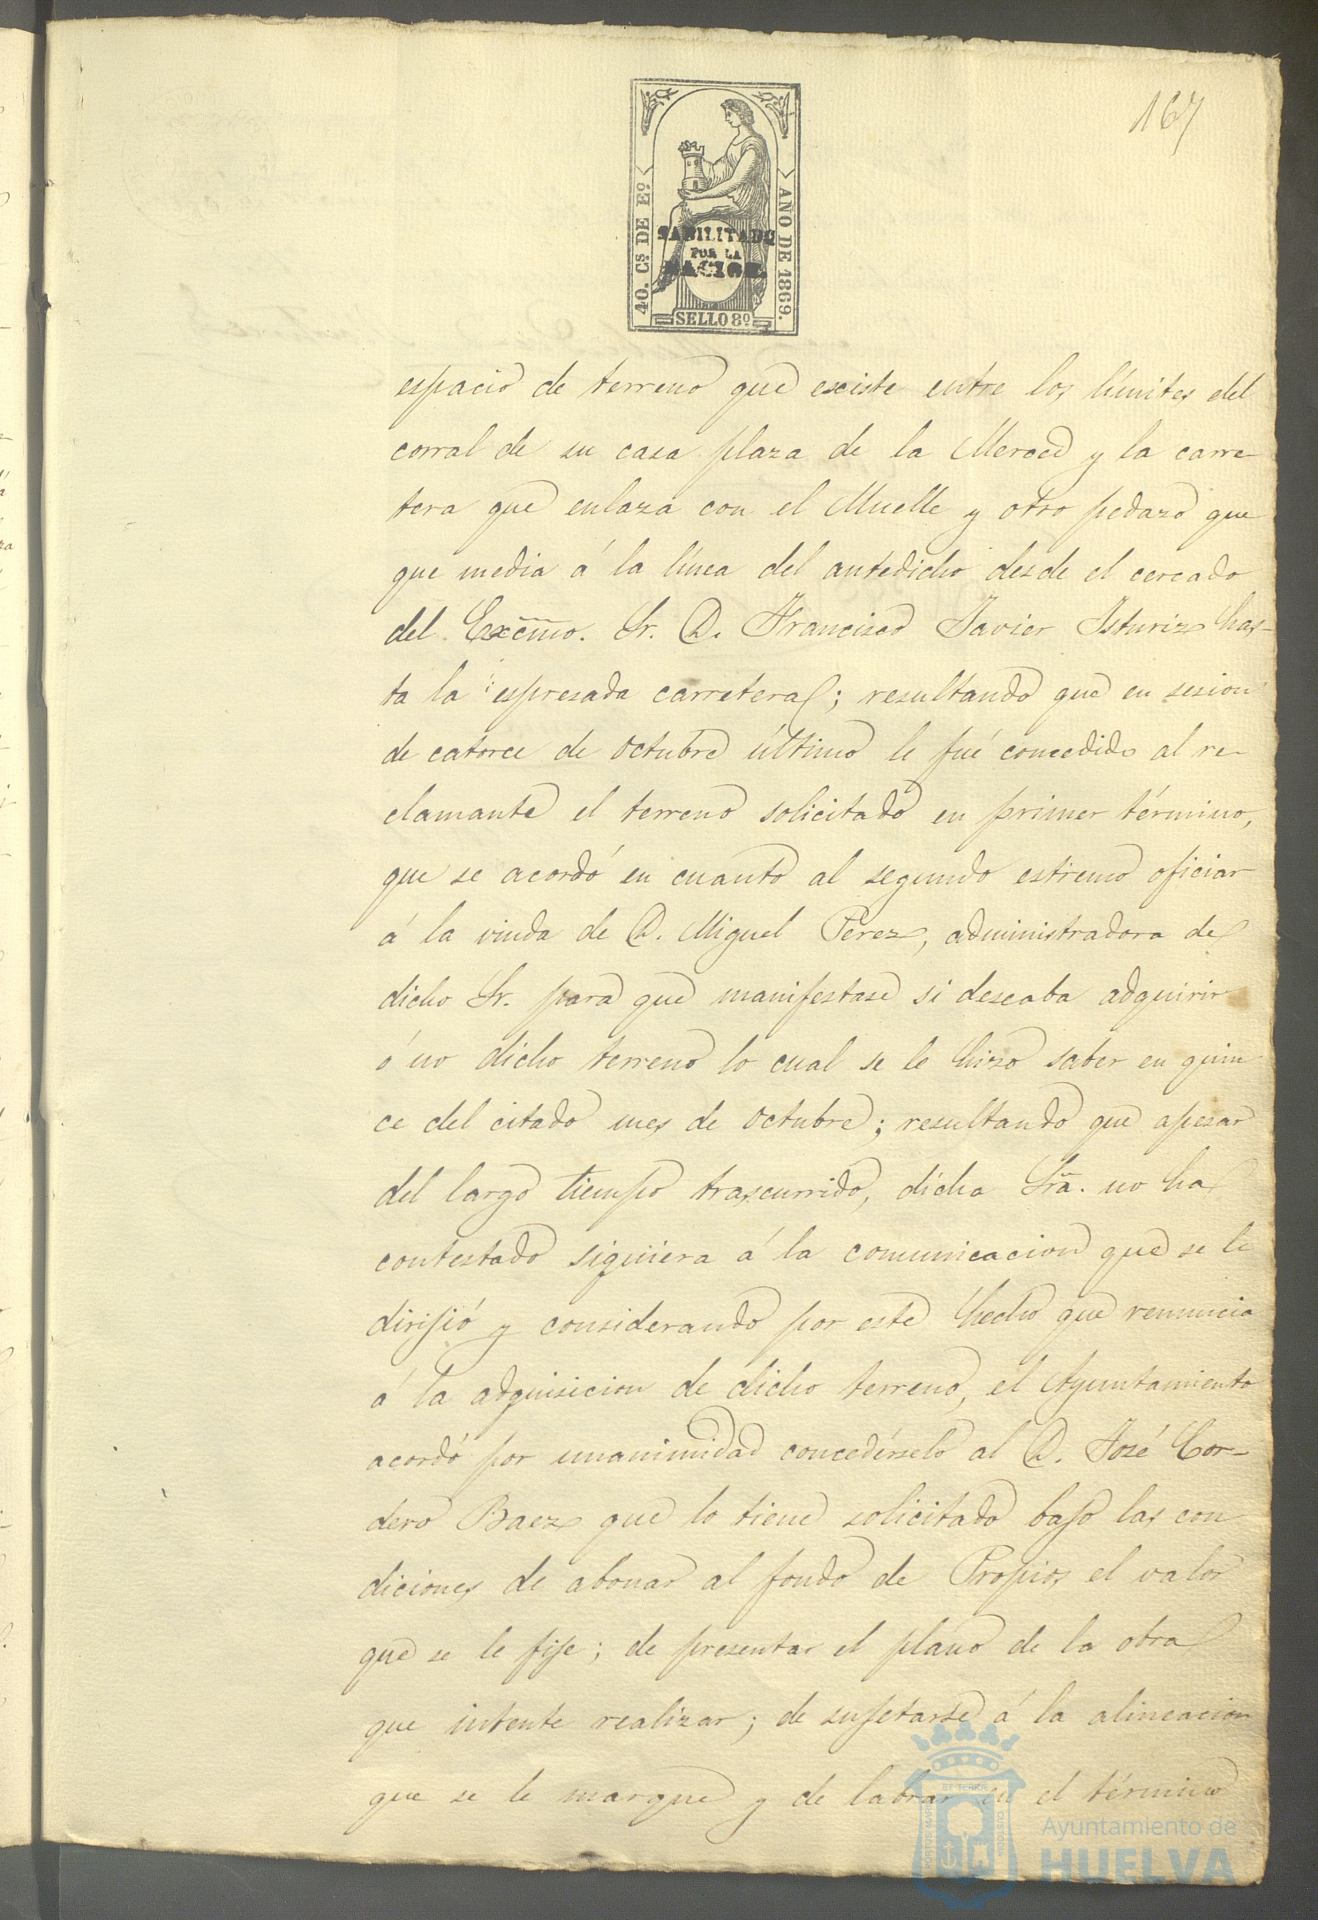 167
40. Cs DE Eo.
AÑO DE 1869.
HABILITADO
POR LA
NACION.
SELLO 8º
espacio de terreno que esciste entre los límites del
corral de su casa plaza de la Merced y la carre-
tera que enlaza con el Muelle y otro pedazo que
que media á la línea del antedicho desde el cercado
del Excmo. Sr. D. Francisco Javier Isturiz has-
ta la espresada carretera; resultando que en sesion
de catorce de Octubre último le fué concedido al re-
clamante el terreno solicitado en primer término,
que se acordó en cuanto al segundo estremo oficiar
á la viuda de D. Miguel Perez, administradora de
dicho Sr. para que manifestase si deseaba adquirir
ó no dicho terreno lo cual se le hizo saber en quin
ce del citado mes de Octubre; resultando que apesar
del largo tiempo trascurrido, dicha Sra. no ha
contestado siquiera á la comunicacion que se le
dirijió y considerando por este hecho que renuncia
á la adquisicion de dicho terreno, el Ayuntamiento
acordó por unanimidad concedérselo al D. José Cor-
dero Baez que lo tiene solicitado bajo las con
diciones de abonar al fondo de Propios el valor
que se le fije; de presentar el plano de la obra
que intente realizar; de sujetarse á la alineacion
que se le marque y de labrar en el término
Ayuntamiento de
HUELVA